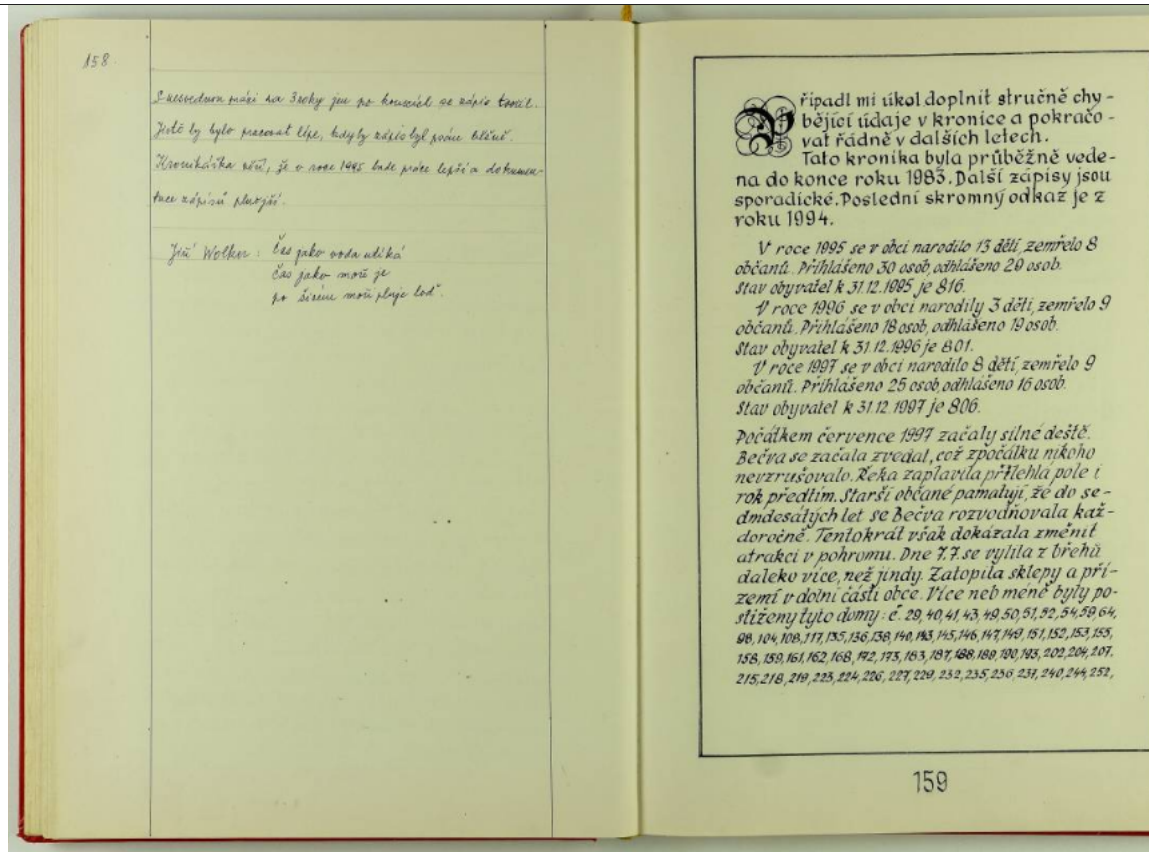 158.
S usovednou prací na 3 roky jen po kouscích se zápis tvořil.
Jistě by bylo pracovat lépe, kdyby zápis byl psán běžně.
Kronikářka věří, že v roce 1985 bude práce lepší a dokumen-
tace zápisů plnější.
Jiří Wolker: Čas jako voda utíká
čas jako moře je
po širém moři pluje loď.
Připadl mi úkol doplnit stručně chy-
bějící údaje v kronice a pokračo-
vat řádně v dalších letech.
Tato kronika byla průběžně vede-
na do konce roku 1983. Další zápisy jsou
sporadické. Poslední skromný odkaz je z
roku 1994.
V roce 1995 se v obci narodilo 13 dětí, zemřelo 8
občanů. Přihlášeno 30 osob, odhlášeno 29 osob.
Stav obyvatel k 31.12.1995 je 816.
V roce 1996 se v obci narodily 3 děti, zemřelo 9
občanů. Přihlášeno 18 osob, odhlášeno 19 osob.
Stav obyvatel k 31.12.1996 je 801.
V roce 1997 se v obci narodilo 8 dětí, zemřelo 9
občanů. Přihlášeno 25 osob, odhlášeno 16 osob.
Stav obyvatel k 31.12.1997 je 806.
Počátkem července 1997 začaly silné deště.
Bečva se začala zvedat, což zpočátku nikoho
nevzrušovalo. Řeka zaplavila přilehlá pole i
rok předtím. Starší občané pamatují, že do se-
dmdesátých let se Bečva rozvodňovala kaž-
doročně. Tentokrát však dokázala změnit
atrakci v pohromu. Dne 7.7. se vylila z břehů
daleko více, než jindy. Zatopila sklepy a pří-
zemí v dolní části obce. Více neb méně byly po-
stiženy tyto domy: č. 29, 40, 41, 43, 49, 50, 51, 52, 54, 59, 64,
98, 104, 108, 117, 135, 136, 138, 140, 143, 145, 146, 147, 149, 151, 152, 153, 155,
158, 159, 161, 162, 168, 172, 173, 183, 187, 188, 189, 190, 193, 202, 204, 207,
215, 218, 219, 223, 224, 226, 227, 229, 232, 235, 236, 237, 240, 244, 252,
159